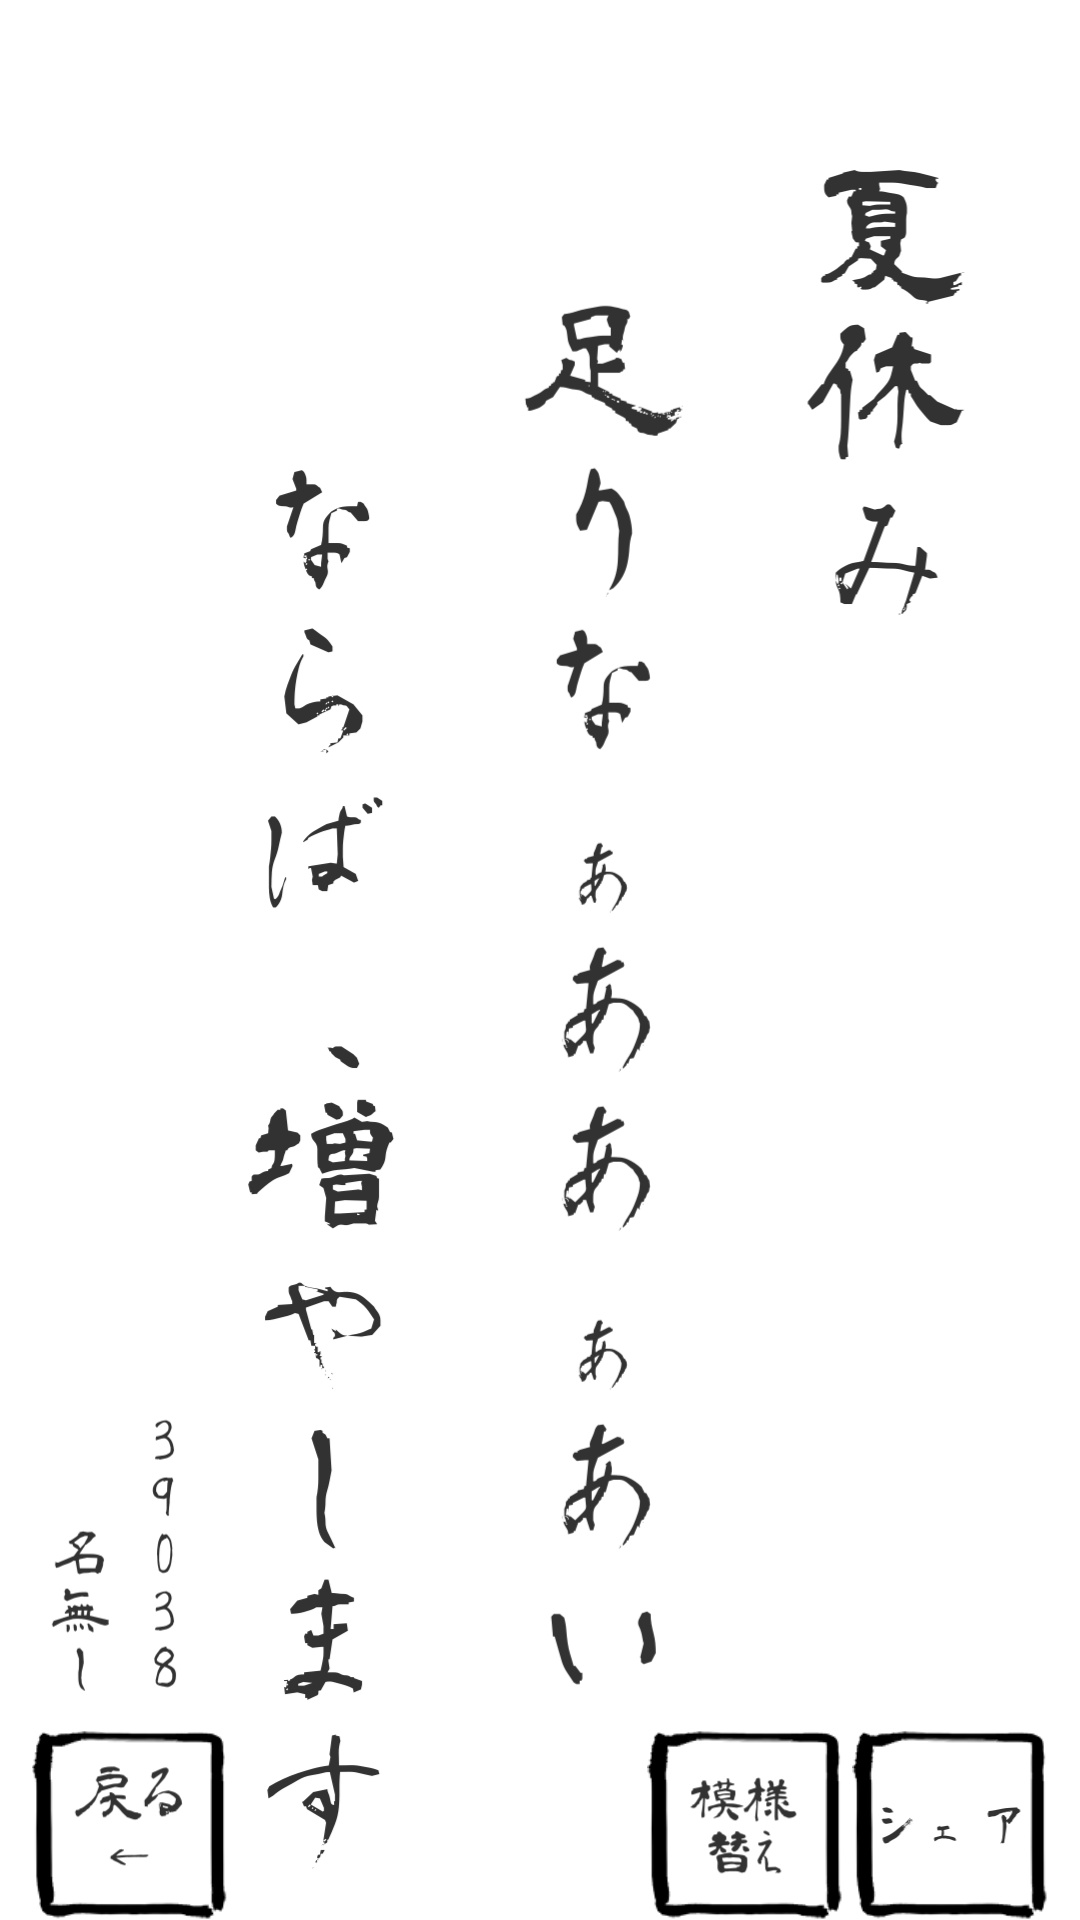 夏休み
足りなぁああぁあい
ならば、増やします
39038
名無し
戻る
←
模様
替え
シェア